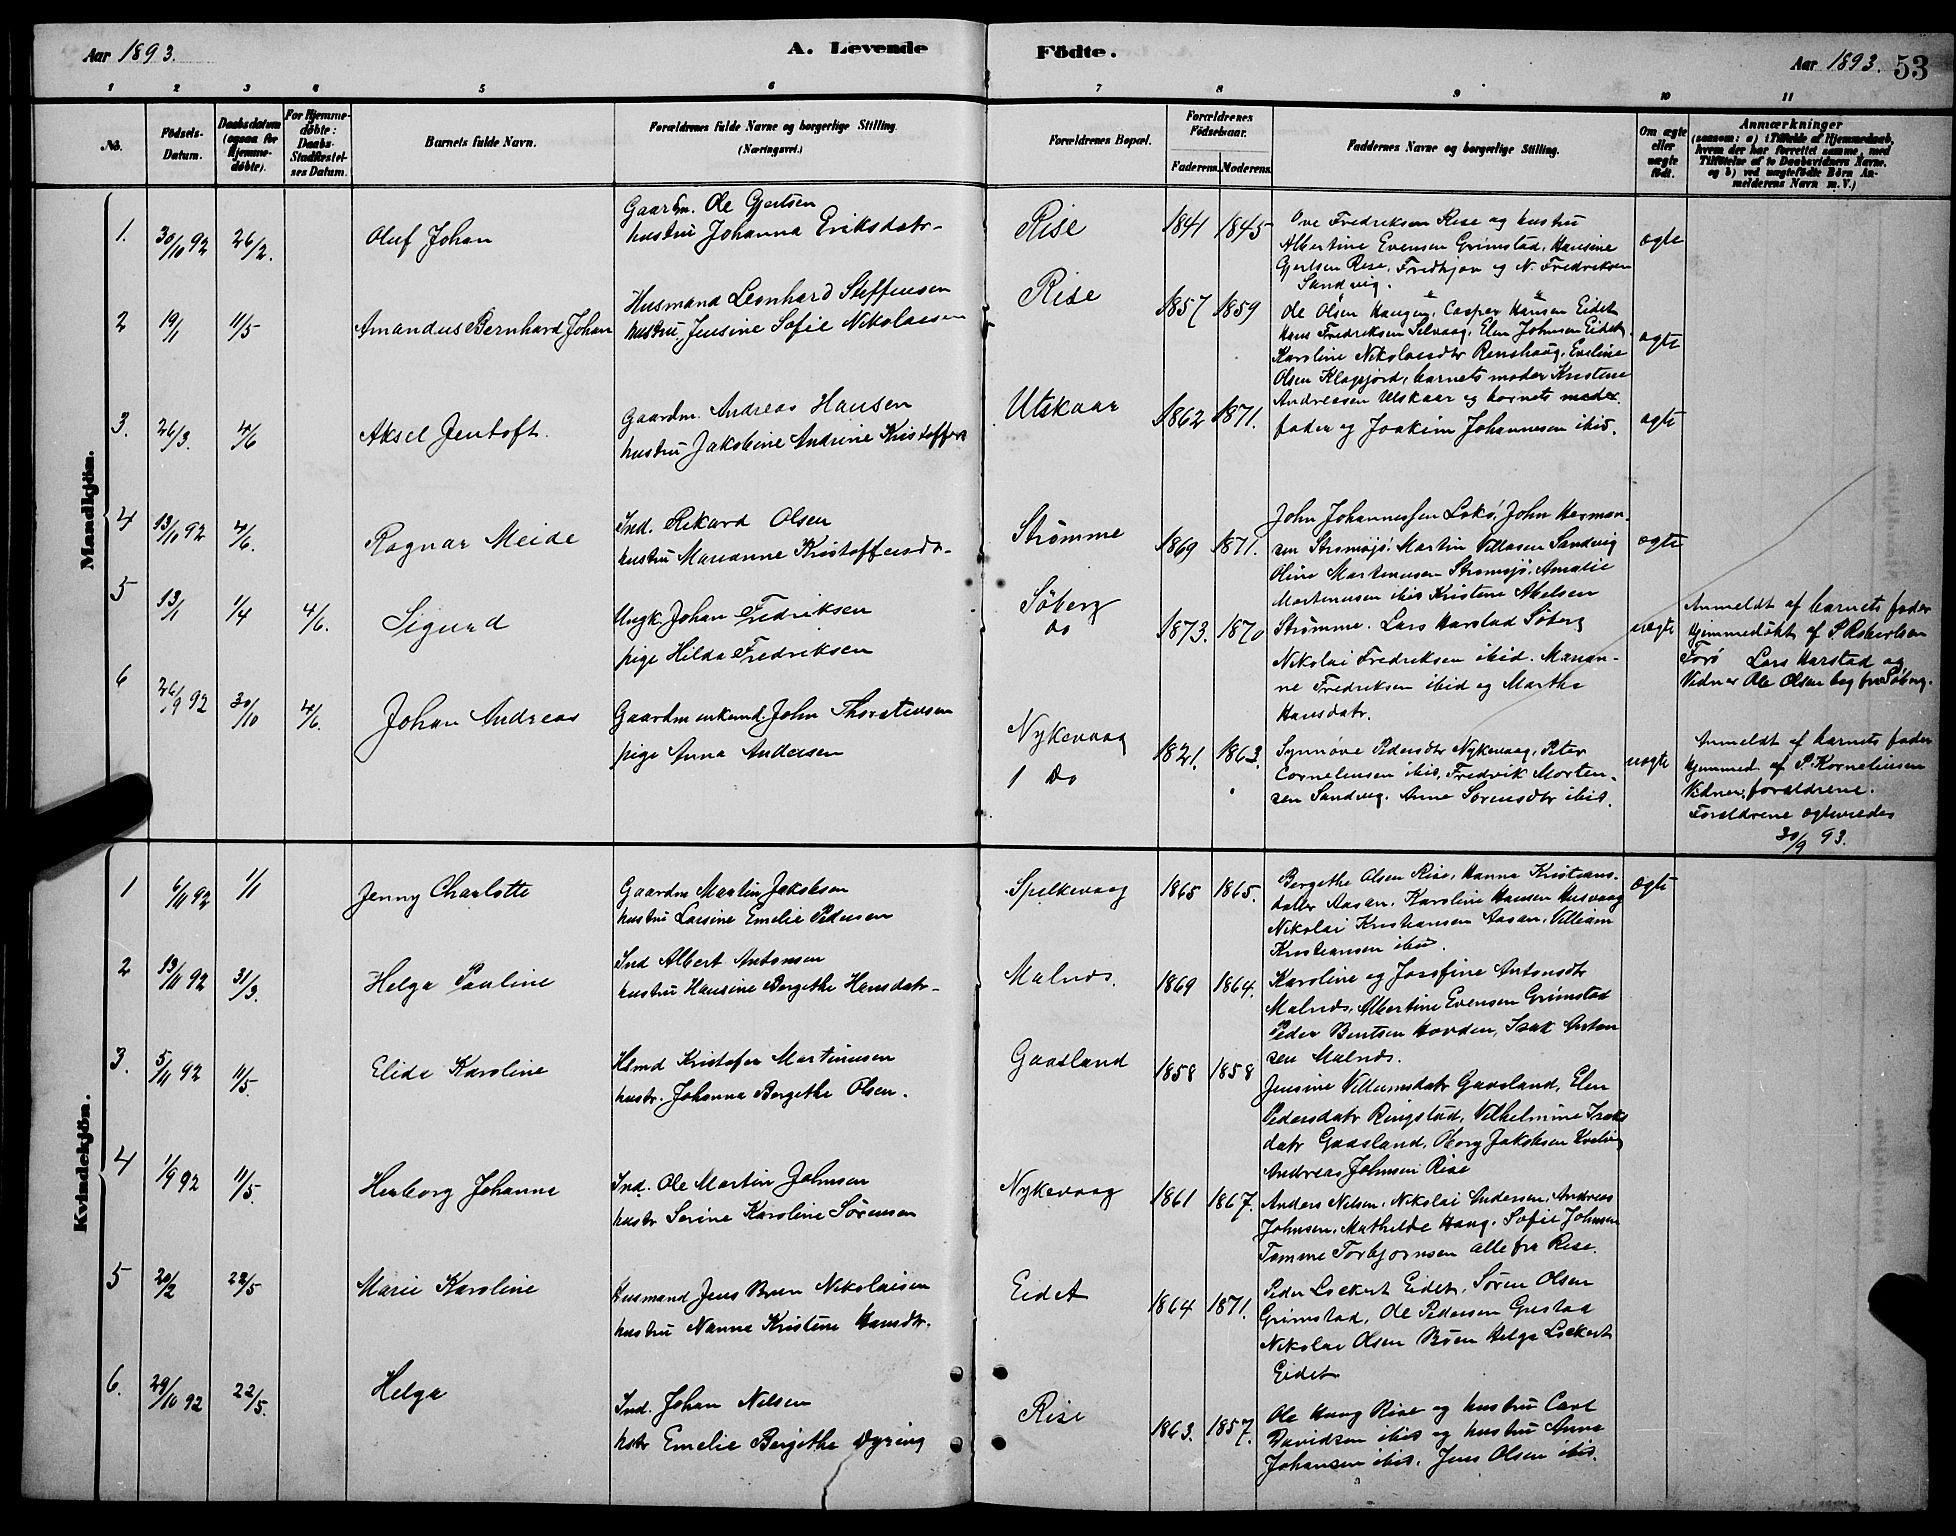 Aar 1893.
A. Levende Födte.
Aar 1893. 53
1 2 3 4 5 6 7 8 9 10 11
No.
Födsels-Datum.
Daabsdatum (ogsaa for Hjemme-döbte).
For Hjemme-döbte: Daabs-Stadfæstel-ses Datum.
Barnets fulde Navn.
Forældrenes fulde Navne og borgerlige Stilling. (Næringsvei.)
Forældrenes Bopæl.
Forældrenes Födselsaar.
Faderens. Moderens.
Faddernes Navne og borgerlige Stilling.
Om ægte eller uægte födt.
Anmærkninger
(saasom: a) i Tilfælde af Hjemmedaab, hvem der har forrettet samme, med Tilföielse af to Daabsvidners Navne, og b) ved uægtefödte Börn An-melderens Navn m. V.)
Mandkjön.
1. 30/10 92 26/2. Oluf Johan
Gaardm. Ole Gjertsen
hustru Johanna Eriksdatr-
Rise 1841 1845
Ove Fredriksen Rise og hustru
Albertine Evensen Grimstad, Hansine
Gjertsen Rise, Fredhjov og N. Fredriksen
Sandvig.
ægte
2 19/1 11/5 Amandus Bernhard Johan
Husmand Leonhard Steffensen
hustru Jensine Sofie Nikolaisen
Rise 1857 1859
Ole Olsen Haugen, Casper Hansen Eidet
Hans Fredriksen Selvaag, Elen Johnsen Eidet,
Karoline Nikolaisdtr Renshaug, Eveline
Olsen Klogsjord, barnets moder Kristine
ægte
3. 26/3. 4/6 Aksel Jentoft.
Gaardm. Andreas Hansen
hustru Jakobine Andrine Kristoffers
Utskaar 1862 1871.
Andreasen Utskaar og barnets moder
fader og Joakim Johannesen ibid.
ægte
4 13/10 92 4/6. Ragnar Meide
Ind. Rikard Olsen
hustru Marianne Kristoffersda-
Strømme 1869 1871.
John Johannessen Lokø, John Herman-
sen Strømsjø, Martin Villasen Sandvig
Oline Martinusen Strømsjø, Amalie
Martinusen ibid Kristine Abelsen
Strømme. Lars Harstad Søberg
ægte
5 13/1 1/4 4/6. Sigurd
Ungk. Johan Fredriksen
pige Hilda Fredriksen
Søberg
do
1873. 1870
Nikolai Fredriksen ibid. Marian-
ne Fredriksen ibid og Marthe
Hansdatr.
uægte
Anmeldt af barnets fader
Hjemmedøbt af P. Robertsen
Førø Lars Harstad og
Vidner Ole Olsen beg fra Søberg.
6 26/9 92 30/10 4/6. Johan Andreas
Gaardm enkemd. John Thorstensen
pige Anna Andersen
Nykevaag
1 Do
1821. 1863.
Synnøve Pedersdtr Nykevaag, Peter
Corneliussen ibid, Fredrik Morten-
sen Sandvig. Anne Sørensdtr ibid.
uægte
Anmeldt af barnets fader
hjemmed af P. Korneliussen
Vidner, forældrene.
Forældrene ægteviedes
30/9 93.
Kvindekjön.
1 6/11 92 1/1 Jenny Charlotte
Gaardm Martin Jakobsen
hustru Larsine Emelie Pedersen
Spelkevaag 1865 1865.
Bergithe Olsen Rise, Hanna Kristians-
datter Aasan. Karoline Hansen Husvaag
Nikolai Kristiansen Aasan, Villiam
Kristiansen ibid.
ægte
2 13/11 92 31/3. Helga Pauline
Ind Albert Antonsen
hustru Hansine Bergithe Hansdatr-
Malnes. 1869 1864.
Karoline og Josefine Antonsdtr
Malnes, Albertine Evensen Grimstad
Peder Bentsen Hovden, Isak Anton
sen Malnes.
3. 5/11 92 11/5. Elida Karoline
Hsmd Kristofer Martinusen
hustr. Johanna Bergithe Olsen.
Gaasland 1858 1858
Jensine Villumsdatr Gaasland, Elen
Pedersdatr Ringstad, Vilhelmine Isaks
datr Gaasland, Oberg Jakobsen Kvalvig
Andreas Johnsen Rise
4 1/9 92 11/5. Herborg Johanne
Ind. Ole Martin Johnsen
hustr Serine Karoline Sørensen
Nykevaag 1861 1867.
Anders Nilsen, Nikolai Andersen, Andreas
Johnsen, Mathilde Haug. Sofie Johnsen
Tomine Torbjørnsen alle fra Rise.
5 20/2 22/5 Marie Karoline
Husmand Jens Buen Nikolaisen
hustru Nanna Kristine Hansdtr.
Eidet 1864 1871.
Peder Lockert Eidet, Søren Olsen
Grimstad, Ole Pedersen Grestad
Nikolai Olsen Bøen Helga Lockert
Eidet
6. 29/10 92 22/5. Helga
Ind. Johan Nilsen
hstr Emelie Bergithe Dyring
Rise 1863. 1857.
Ole Haug Rise og hustru Carl
Davidsen ibid og hustru Anna
Johansen ibid. Jens Olsen ibid.